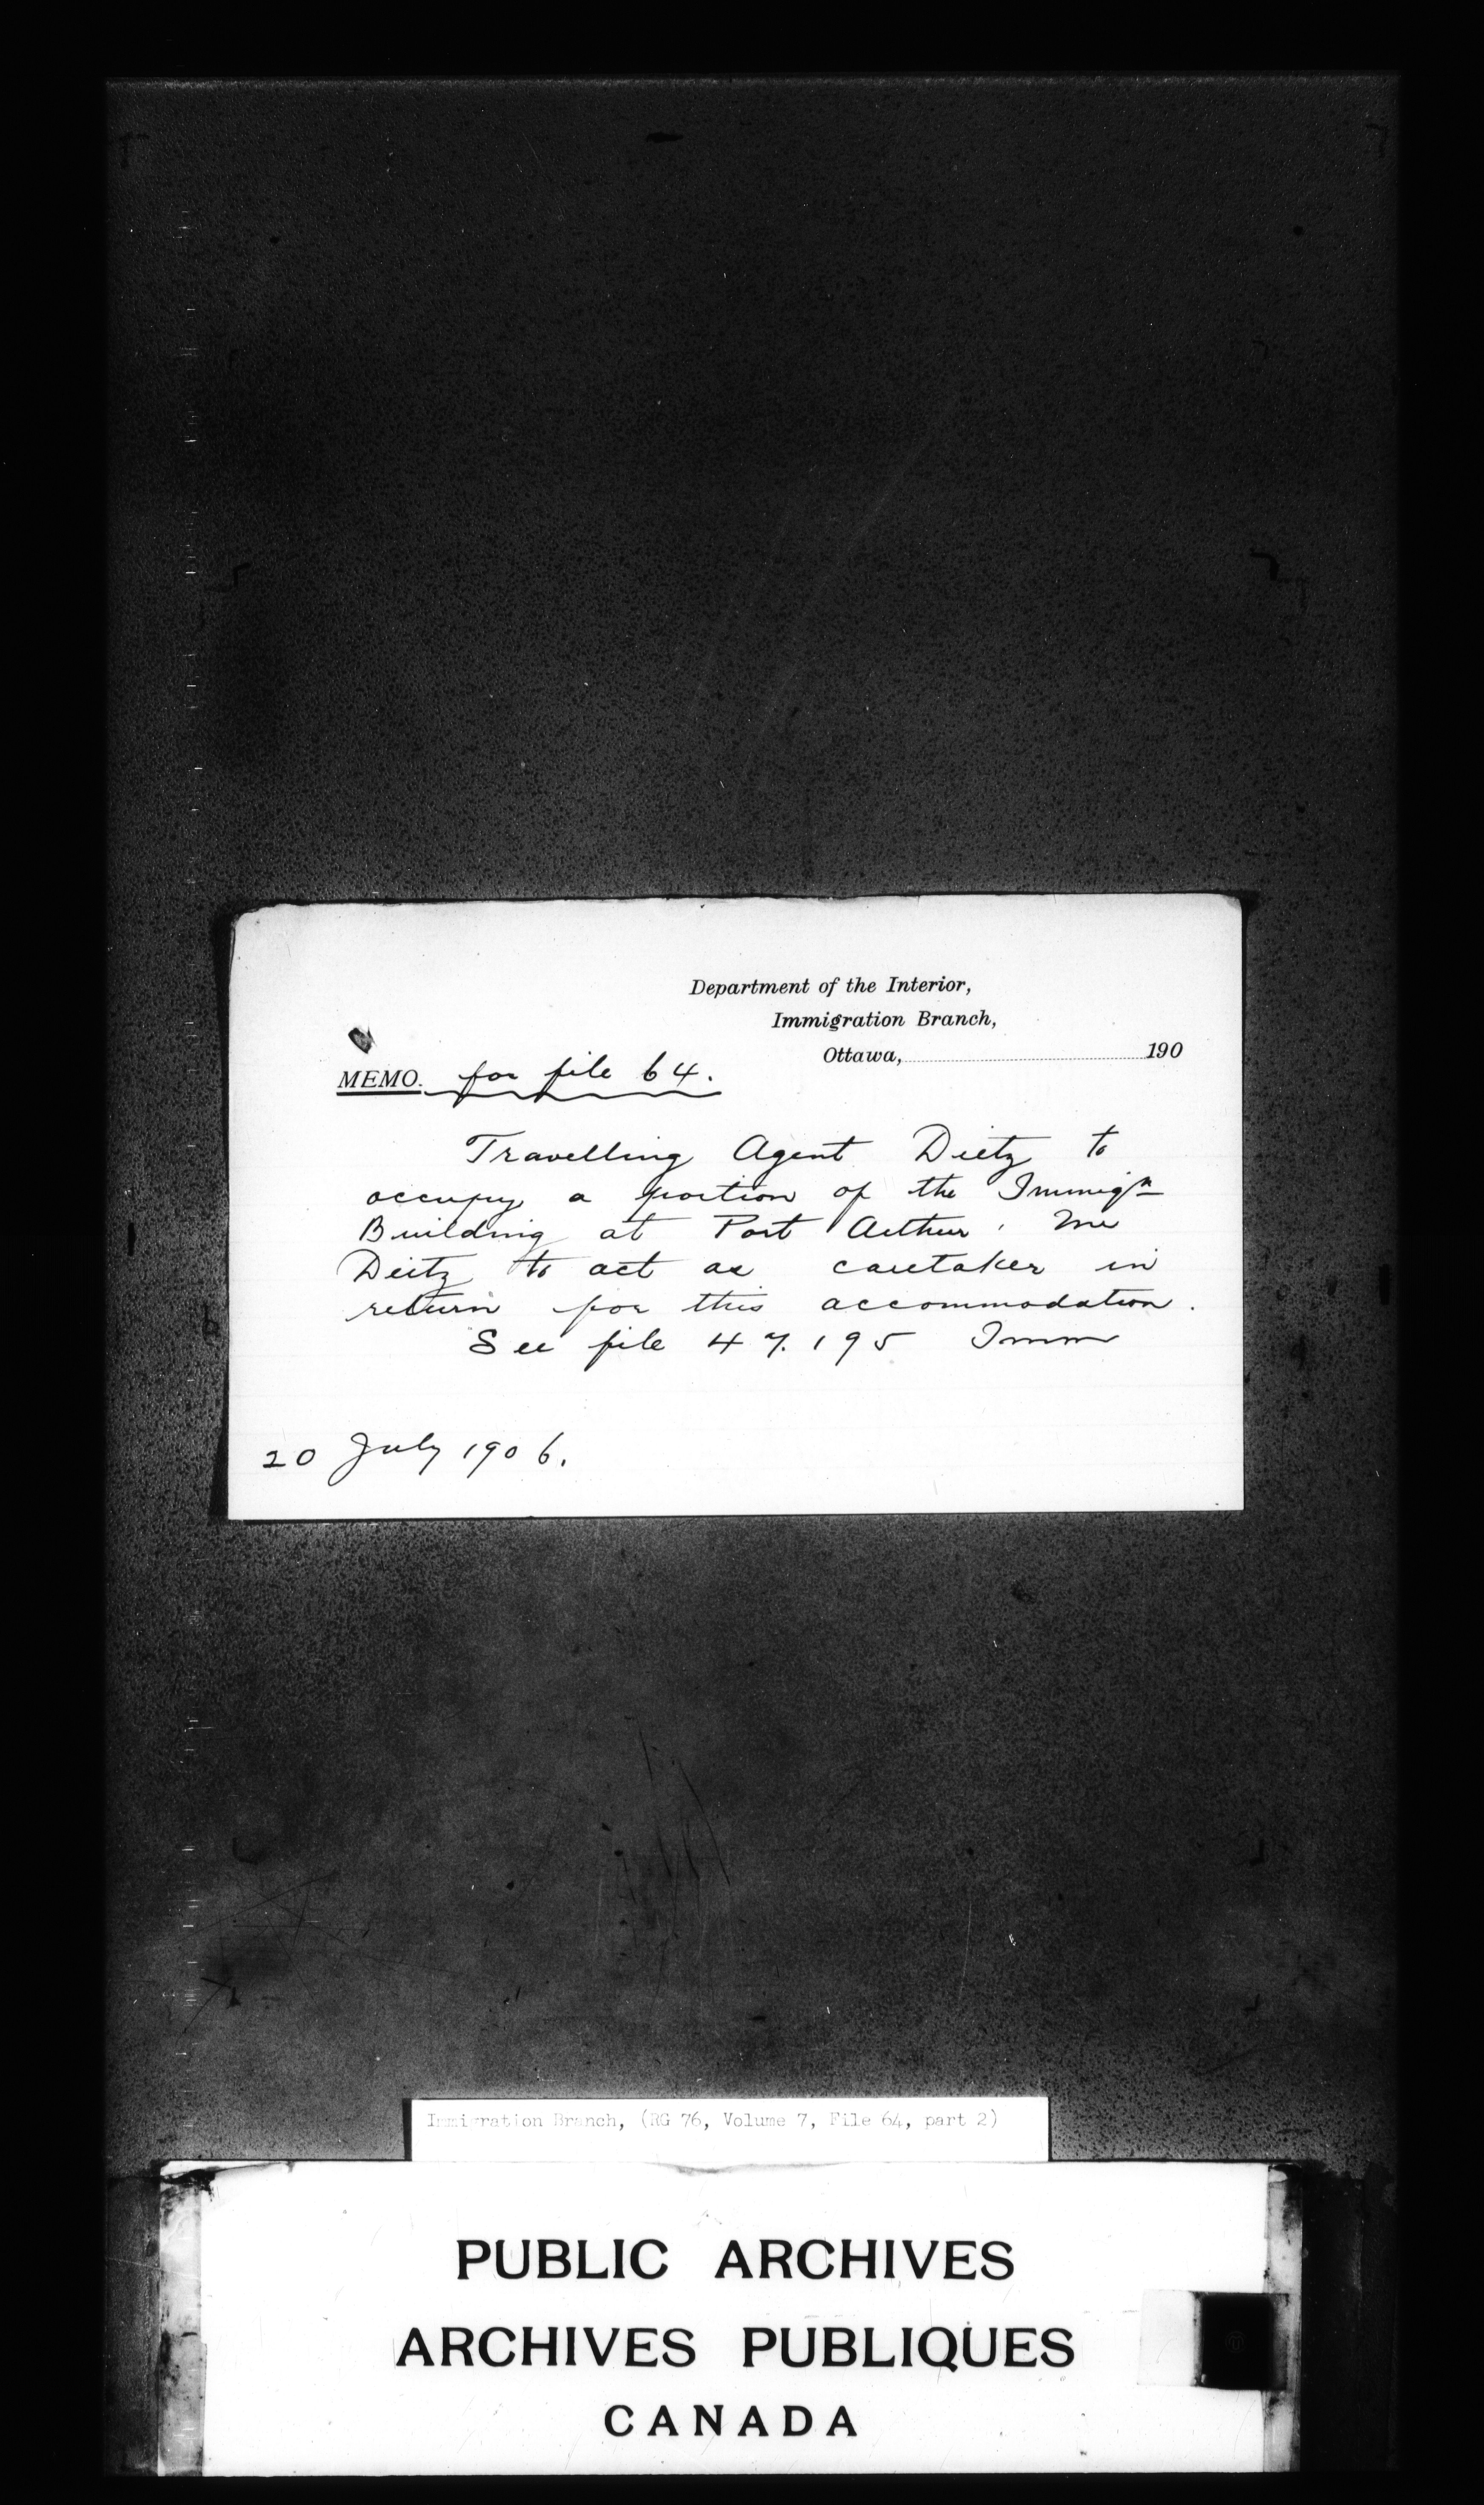 Department of the Interior,
Immigration Branch,
Ottawa, 190
MEMO. for file 64.
Travelling Agent Dietz to
occupy a portion of the Immign
Building at Port Arthur. Mr
Deitz to act as caretaker in
return for this accommodation.
See file 47.195 Imm
20 July 1906.
Immigration Branch, (RG 76, Volume 7, File 64, part 2)
PUBLIC ARCHIVES
ARCHIVES PUBLIQUES
CANADA